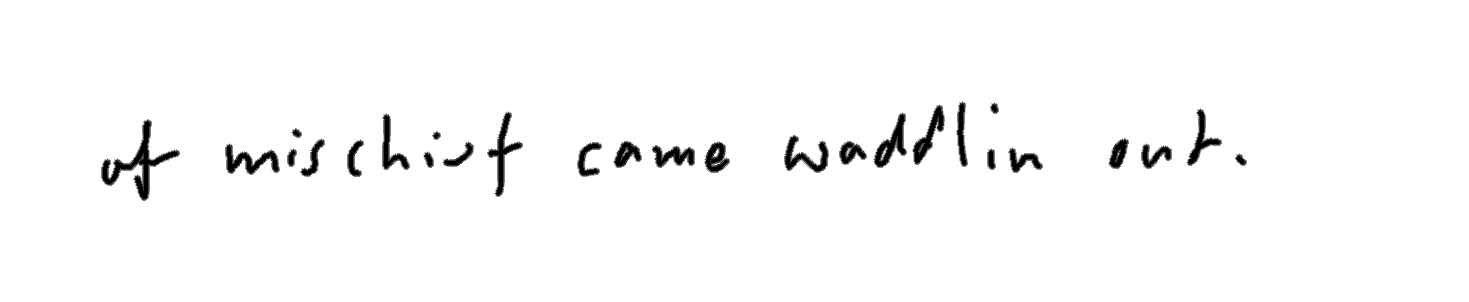 of mischief came waddlin out.